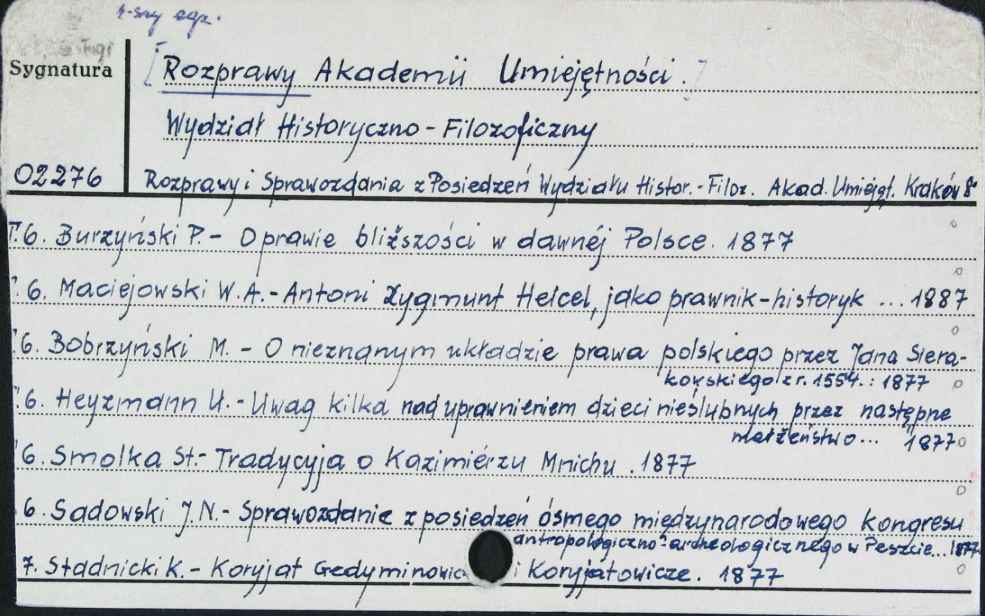 2-gi egz.
Sygnatura
[Rozprawy Akademii Umiejętności.]
Wydział Historyczno-Filozoficzny
02276
Rozprawy i Sprawozdania z Posiedzeń Wydziału Histor.-Filoz. Akad. Umiejęt. Kraków 8°
T.6. Burzyński P.- O prawie bliższości w dawnéj Polsce. 1877
T.6. Maciejowski W.A.- Antoni Zygmunt Helcel, jako prawnik-historyk ... 1887
T.6. Bobrzyński M. - O nieznanym układzie prawa polskiego przez Jana Siera-
kowskiego z r. 1554.: 1877
T.6. Heyzmann U.- Uwag kilka nad uprawnieniem dzieci nieślubnych przez następne
małżeństwo... 1877
6. Smolka St.- Tradycyja o Kazimiérzu Mnichu. 1877
6. Sadowski J.N.- Sprawozdanie z posiedzeń ósmego międzynarodowego kongresu
antropologiczno-archeologicznego w Peszcie... 1877
7. Stadnicki K. - Koryjat Gedyminowic i Koryjatowicze. 1877